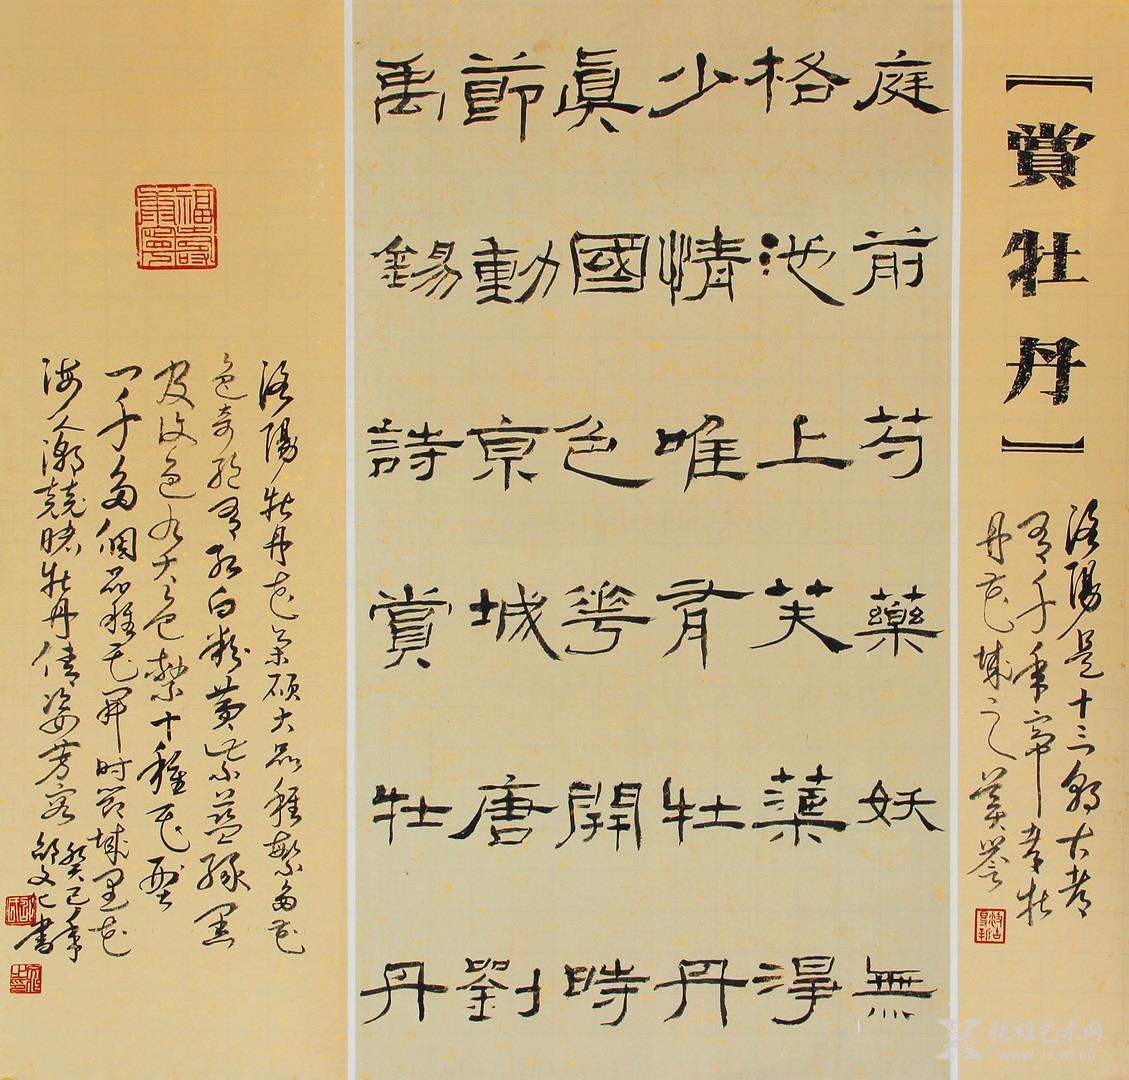 【賞牡丹】
洛陽是十三朝古都
有千年帝牡
丹花城之美譽
庭前芍藥妖無
格池上芙蕖淨
少情唯有牡丹
眞國色花開時
節動京城唐劉
禹錫詩賞牡丹
洛陽牡丹花朵碩大品種繁多花
色奇絕有紅白粉黃紫藍綠黑
及復色九大色繫十種花型
一千多個品種花開時節城里花
海人潮競睹牡丹倩姿芳容
癸巳年
文仁書
福壽康寧
张雄艺术网
www.zxart.cn